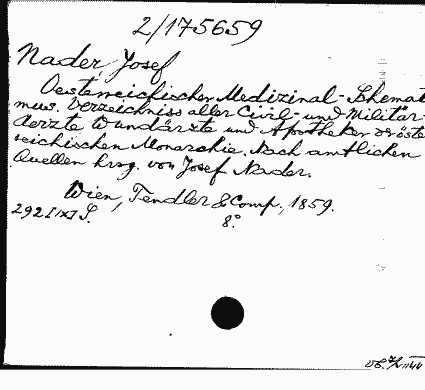 2/175659
Nader Josef
Oesterreichischer Medizinal-Schemat
mus. Verzeichniss aller Civil- und Militär-
Aerzte Wundärzte und Apotheker der öste
reichischen Monarchie. Nach amtlichen
Quellen hrsg. von Josef Nader.
Wien, Tendler & Comp., 1859.
292 [IX] S. 8°